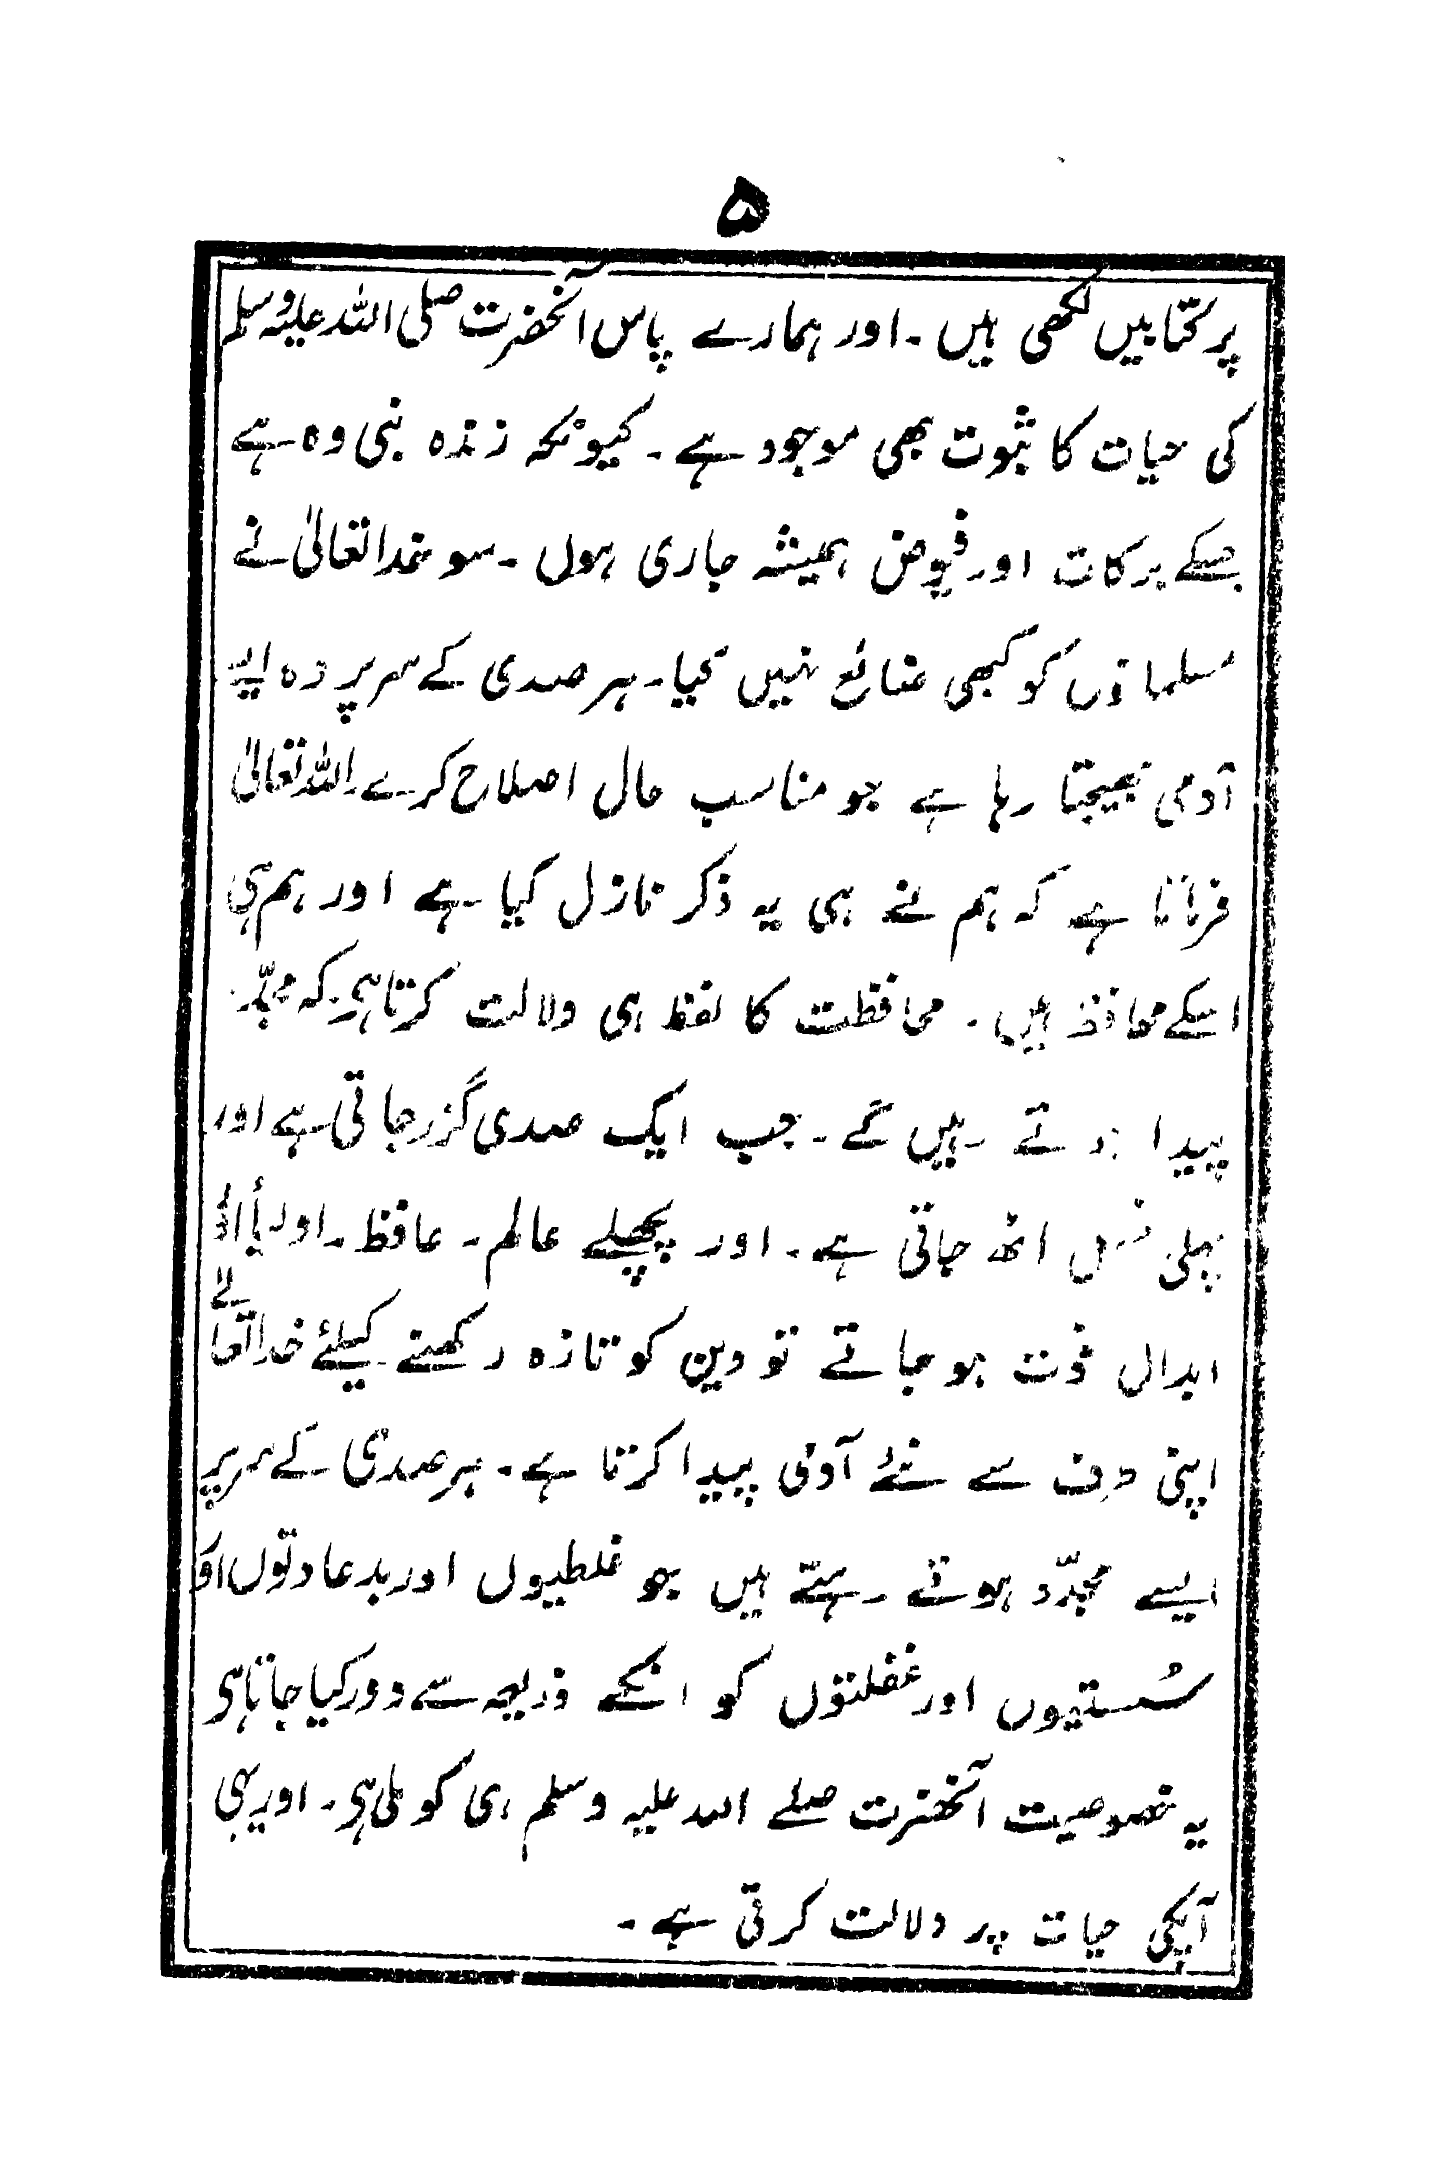 ۵
پر کتابیں لکھی ہیں ۔ اور ہمارے پاس آنحضرت صلی اللہ علیہ وسلم
کی حیات کا ثبوت بھی موجود ہے ۔ کیونکہ زندہ نبی وہ ہے
جسکے برکات اور فیوض ہمیشہ جاری ہوں ۔ سو خداتعالیٰ نے
مسلمانوں کو کبھی ضائع نہیں کیا ۔ ہر صدی کے سر پر وہ ایسے
آدمی بھیجتا رہا ہے جو مناسب حال اصلاح کرے اللہ تعالیٰ
فرماتا ہے کہ ہم نے ہی یہ ذکر نازل کیا ہے اور ہم ہی
اسکے محافظ ہیں ۔ محافظت کا لفظ ہی دلالت کرتا ہے کہ مجدّد
پیدا ہوتے رہیں گے ۔ جب ایک صدی گزر جاتی ہے اور
پہلی نسل اٹھ جاتی ہے ۔ اور پچھلے عالم ۔ حافظ ۔ اولیأ اللہ
ابدال فوت ہو جاتے تو دین کو تازہ رکھنے کیلئے خداتعالےٰ
اپنی طرف سے نئے آدمی پیدا کرتا ہے ۔ ہر صدی کے سر پر
ایسے مجدّد ہوتے رہتے ہیں جو غلطیوں اور بد عادتوں اور
سُستیوں اور غفلتوں کو انکے ذریعہ سے دور کیا جاتا ہی
یہ خصوصیت آنحضرت صلے اللہ علیہ وسلم ہی کو ملی ہی ۔ اور یہی
آپکی حیات پر دلالت کرتی ہے ۔